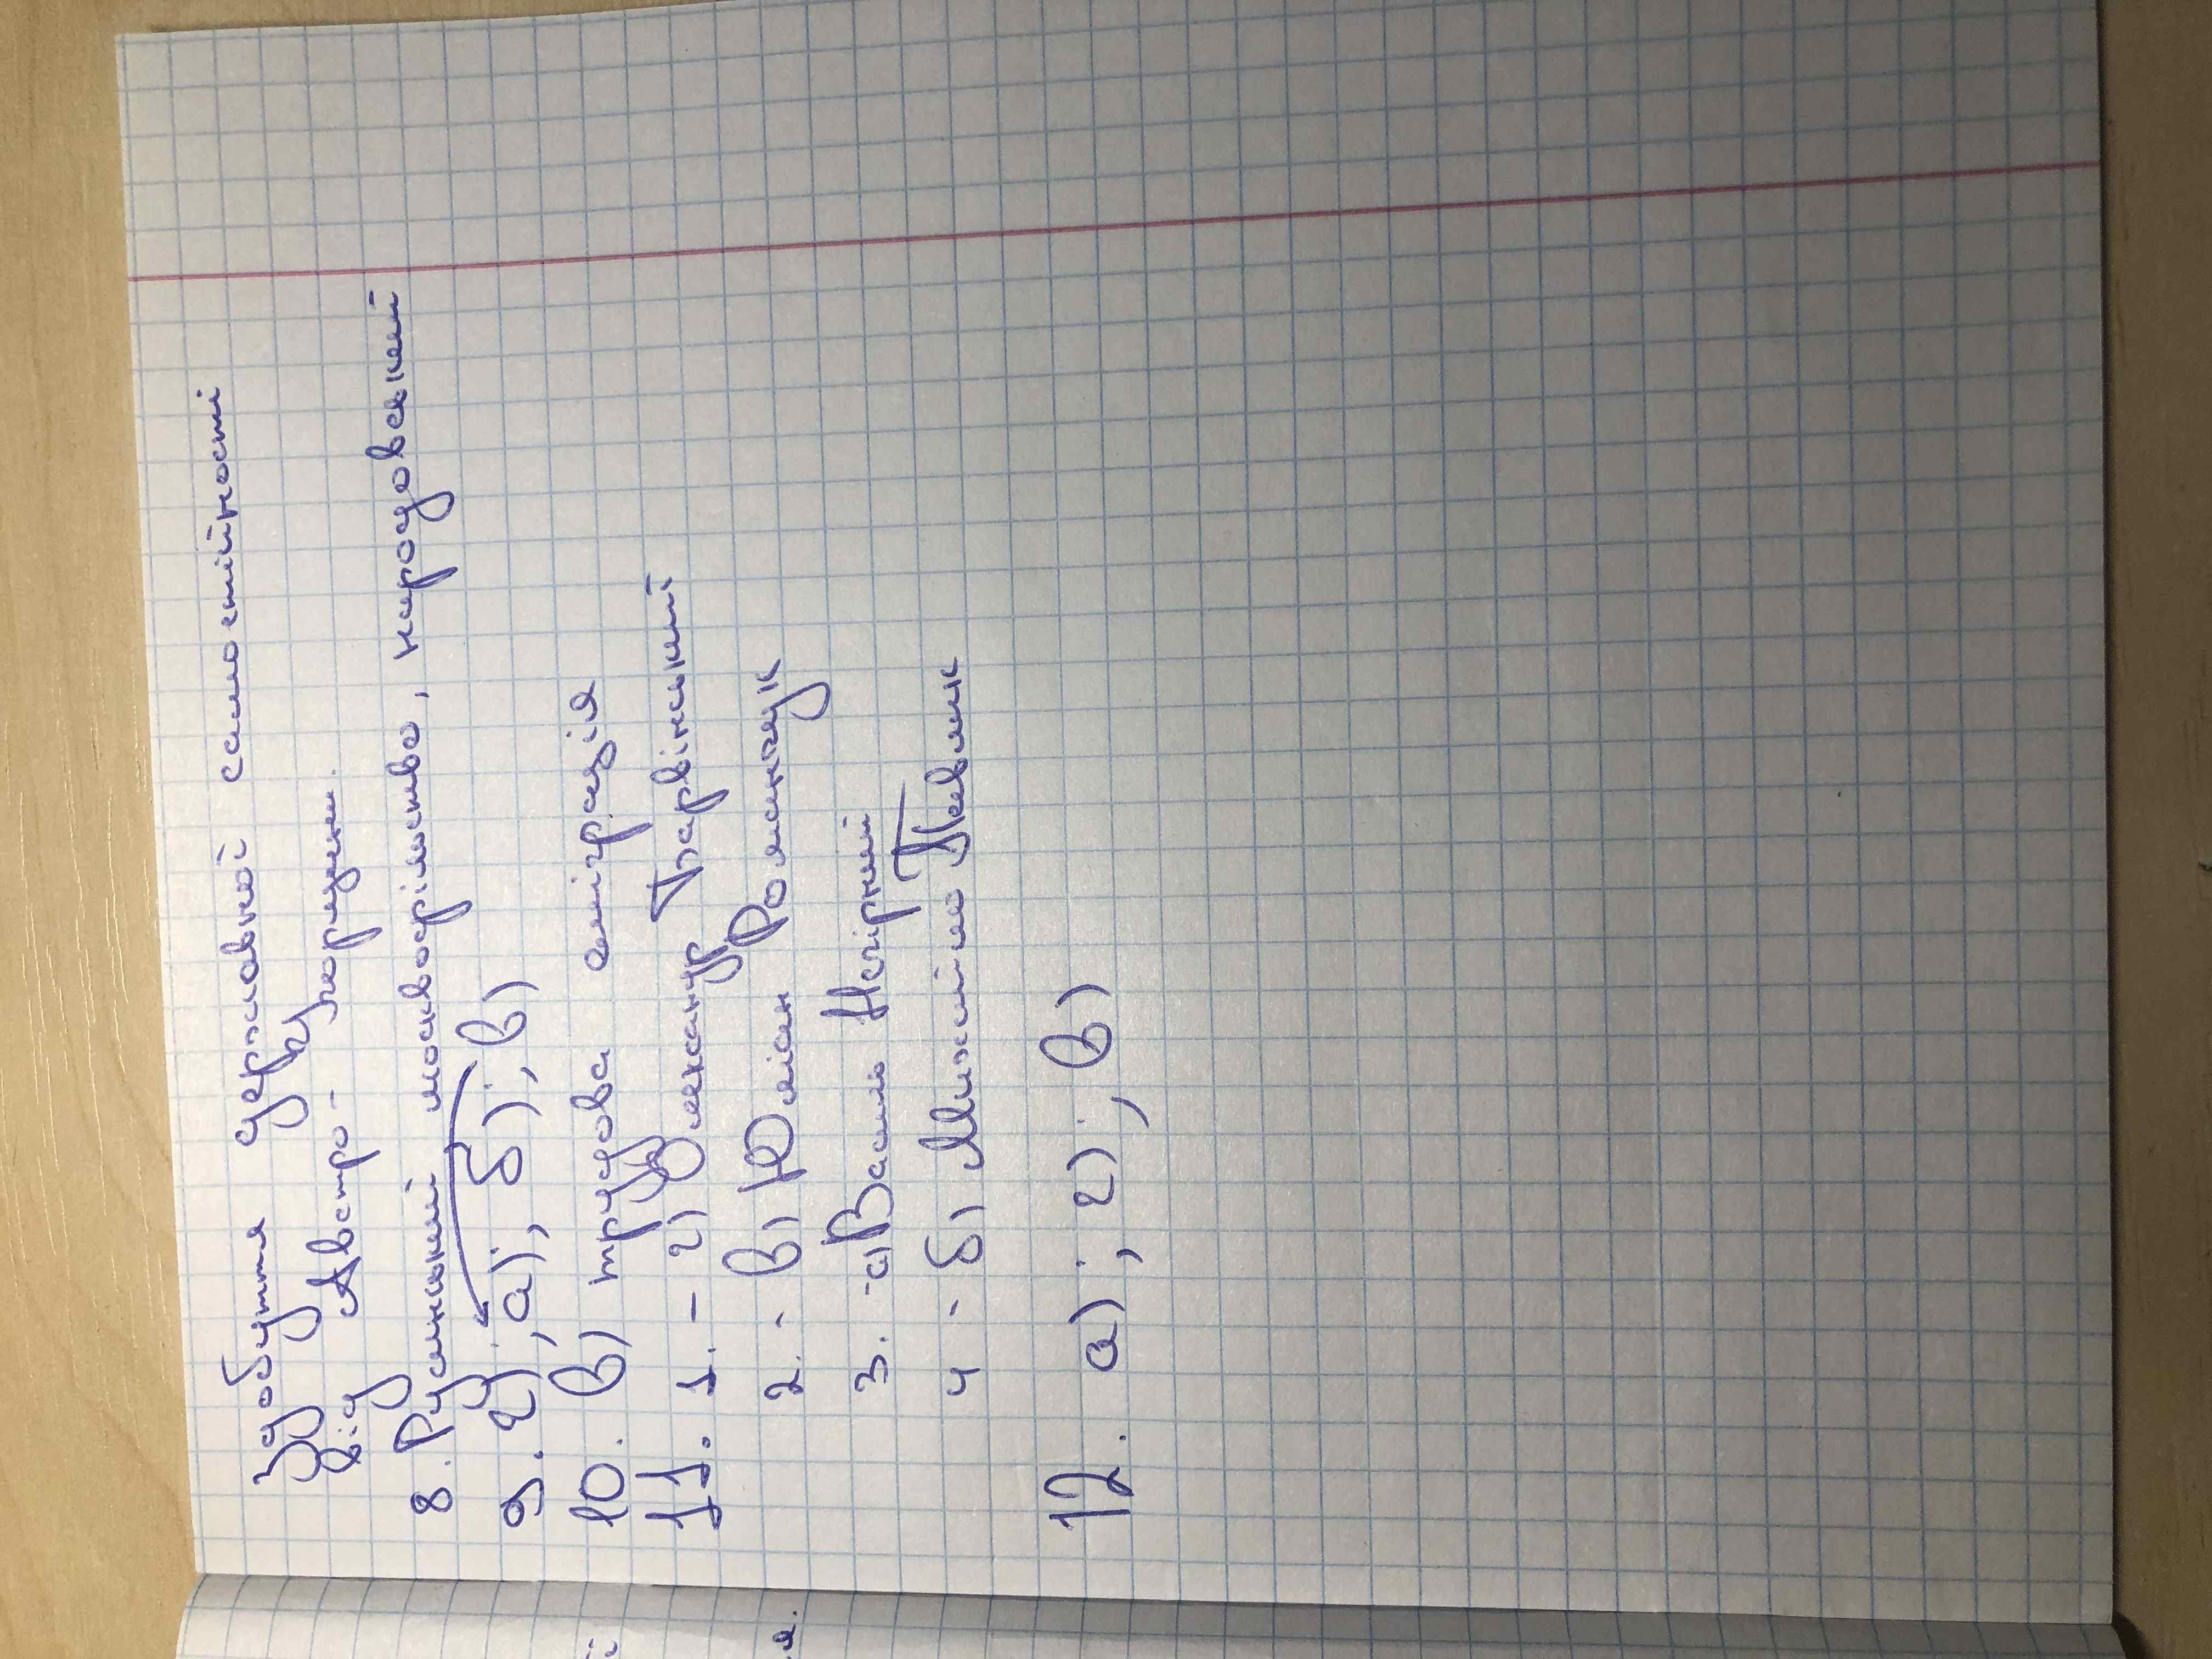 Здобуття державної самостійності
від Австро-Угорщини.
8. Руський москвофільство, народовський
9. г); а); б); в)
10. в) трудова еміграція
11. 1. - г) Олександр Барвінський
2. - в) Юліан Романчук
3. - а) Василь Нагірний
4 - б) Михайло Павлик
12. а); г); в)